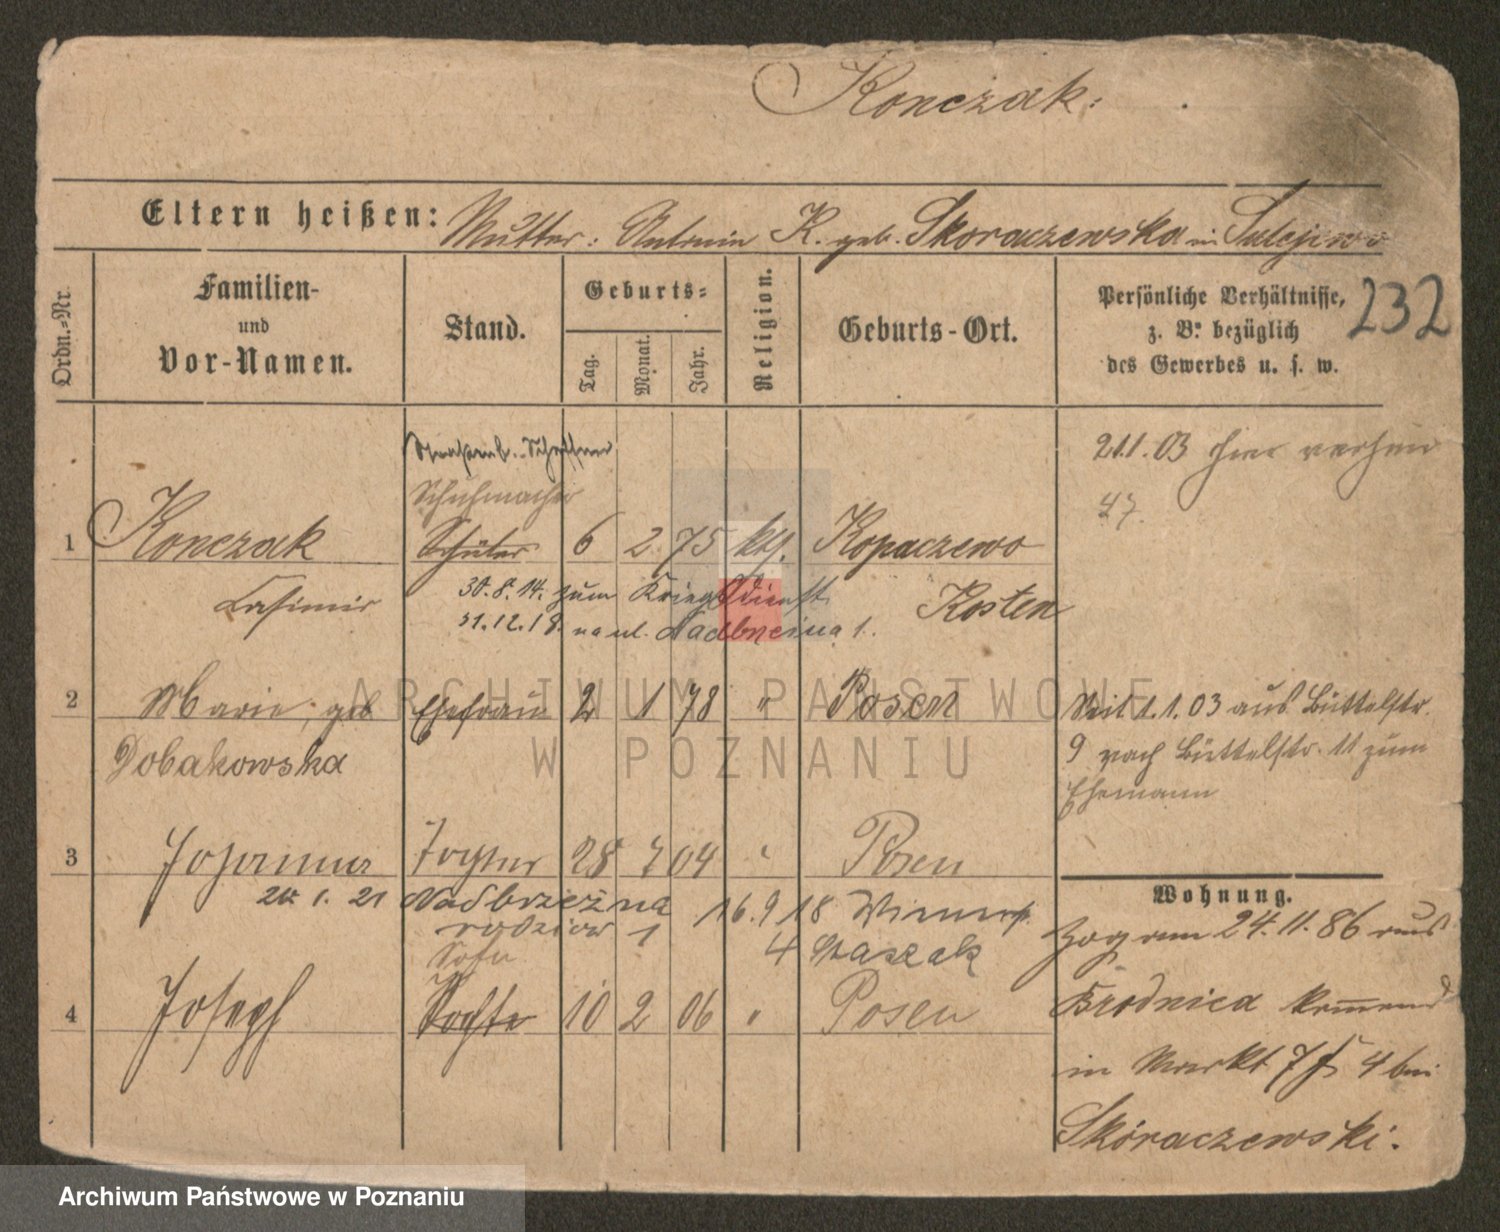 Konczak.
Eltern heißen: Mutter: Antonie K. geb. Skoraczewska in Sulejewo
Ordn.-Nr.
Familien-
und
Vor-Namen.
Stand.
Geburts-
Tag.
Monat.
Jahr.
Religion.
Geburts-Ort.
Persönliche Verhältnisse,
z. B. bezüglich
des Gewerbes u. s. w.
232
Schuhmacher
1 Konczak Schüler 6 2 75 kth. Kopaczewo
Casimir
Kosten
30.8.14. zum Kriegsdienst
31.12.18. Nadbrzeżna 1.
21.1.03 hier
47.
2 Marie, geb Ehefrau 2 1 78 " Posen
Dobakowska
Seit 1.1.03 aus Büttelstr.
9 nach Büttelstr. 11 zum
Ehemann
3 Johanna Tochter 28 7 04 " Posen
1. 21 Nadbrzeżna 16.9 18
1
4 Staszak
Sohn
4 Joseph Tochter 10 2 06 " Posen
Wohnung.
Zog am 24.11.86 aus
Brodnica kommend
in Markt 7 4 bei
Skóraczewski.
ARCHIWUM PAŃSTWOWE
W POZNANIU
Archiwum Państwowe w Poznaniu